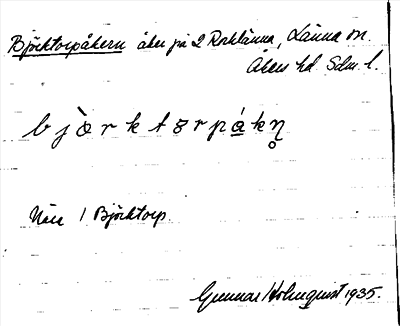 Björktorpåkern åker på 2 Rocklänna, Länna sn.
Åkers hd. Sdm l.
b j ɑ̀ r k t ɞ r p á k n̥
Nära 1 Björktorp.
Gunnar Holmquist 1935.